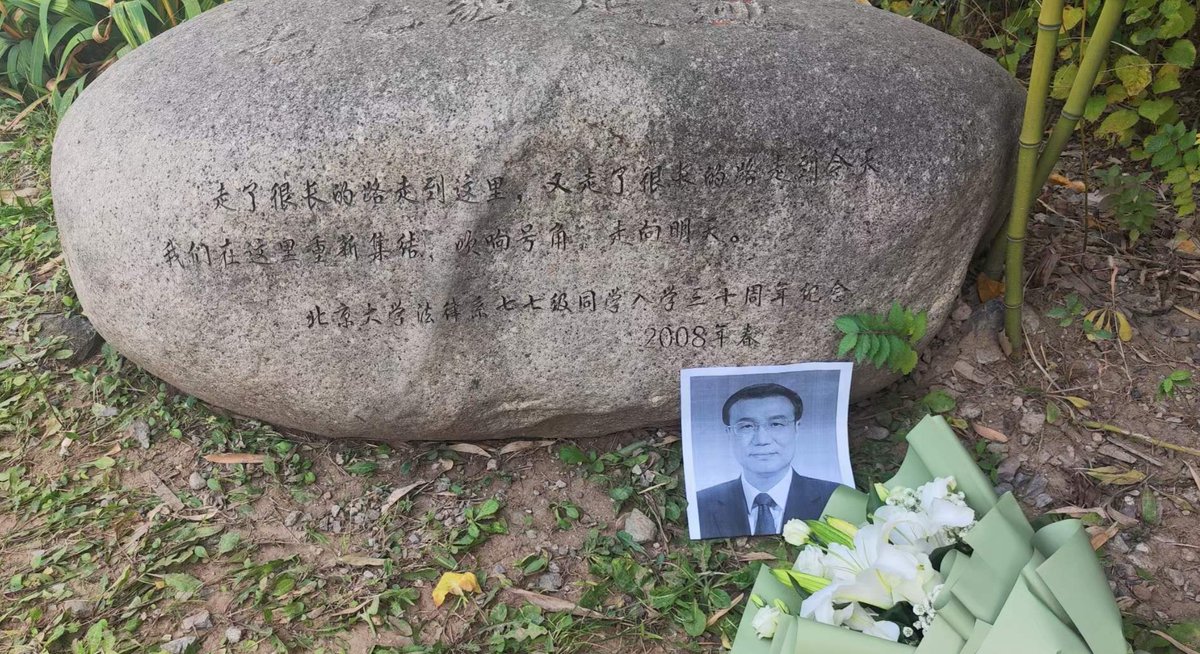 走了很长的路走到这里，又走了很长的路走到今天
我们在这里重新集结，吹响号角，走向明天。
北京大学法律系七七级同学入学三十周年纪念
2008年春